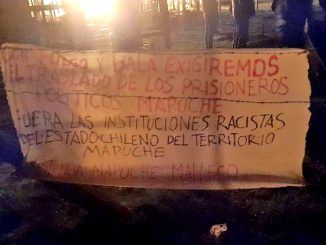 FUEGO Y BALA EXIGIREMOS
EL TRASLADO DE LOS PRISIONEROS
POLITICOS MAPUCHE
FUERA LAS INSTITUCIONES RACISTAS
DEL ESTADO CHILENO DEL TERRITORIO
MAPUCHE
MAPUCHE MALLECO